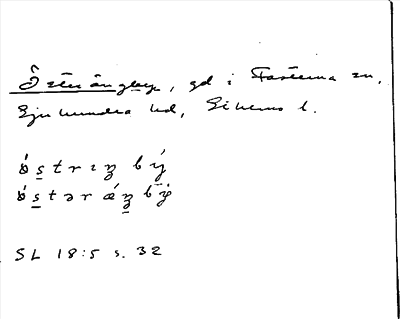 Österängby, gd i Fasterna sn,
Sjuhundra hd, Sthlms l.
östrıŋ bẏ
östər æŋ bẏ
SL 18:5 s. 32